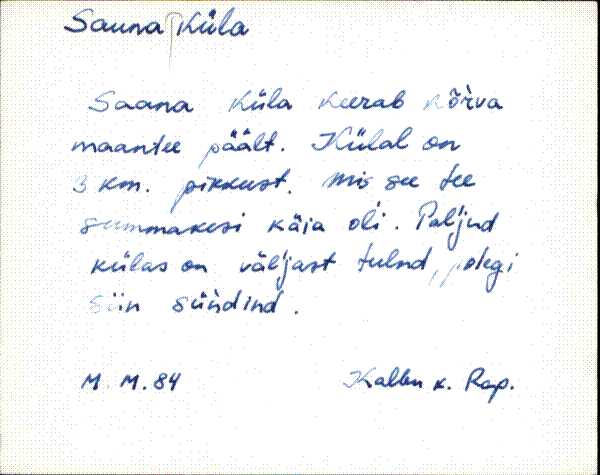 Sauna küla
Saana küla keerab kõrva
maantee päält. Külal on
3 km. pikkust. Mis see tee
summakesi käia oli. Pal'jud
külas on väl'jast tulnd, polegi
siin sündind.
M. M. 84 Kallen k. Rap.